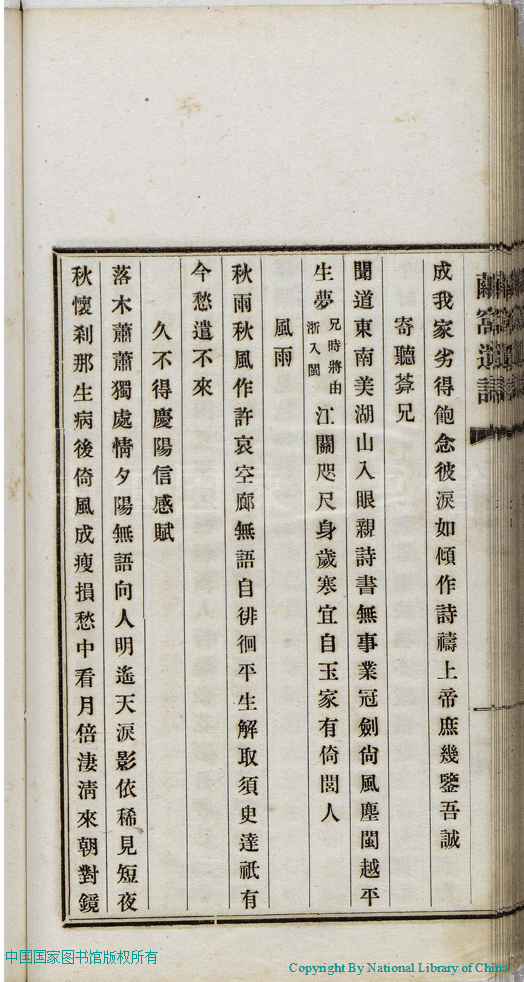 成我家劣得飽念彼淚如傾作詩禱上帝庶幾鑒吾誠
寄聽葊兄
聞道東南美湖山入眼親詩書無事業冠劍尙風塵閩越平
生夢兄時將由浙入閩江關咫尺身歲寒宜自玉家有倚閭人
風雨
秋雨秋風作許哀空廊無語自徘徊平生解取須史達祇有
今愁遣不來
久不得慶陽信感賦
落木蕭蕭獨處情夕陽無語向人明遙天淚影依稀見短夜
秋懷刹那生病後倚風成瘦損愁中看月倍淒淸來朝對鏡
中国国家图书馆版权所有
Copyright By National Library of China